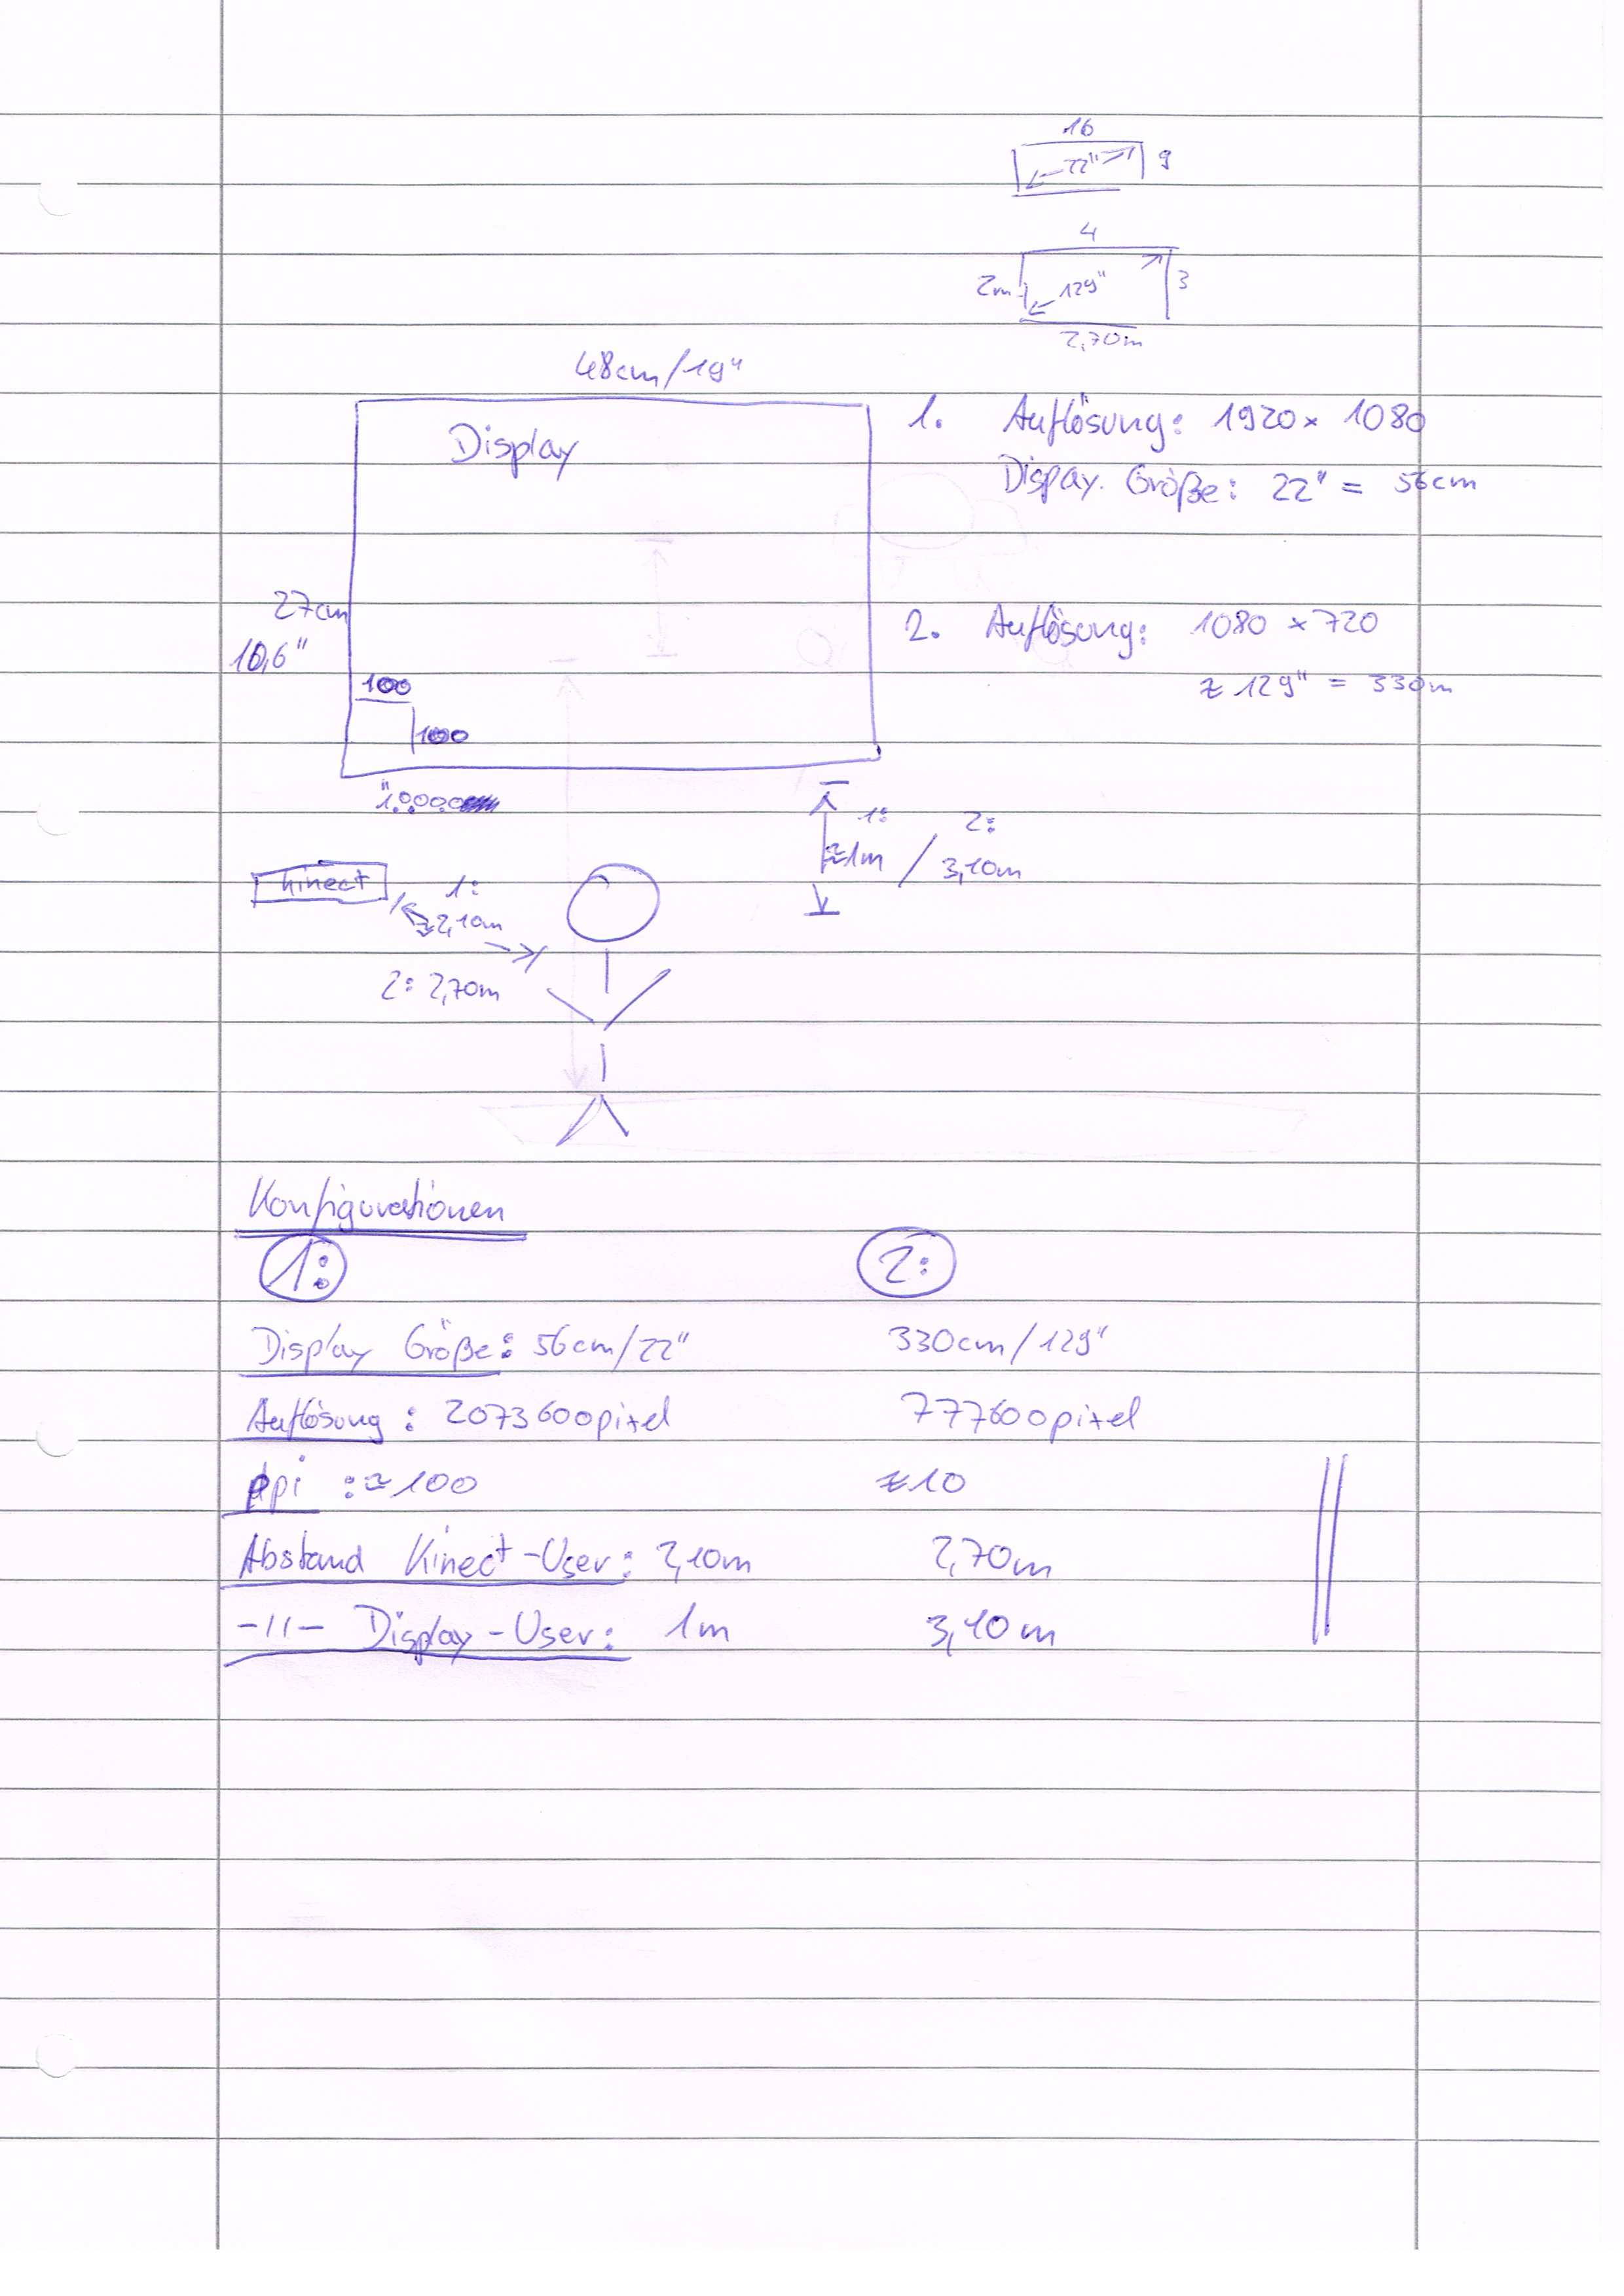 16
22" 9
4
2m 129" 3
2,70m
48cm/19"
Display
1. Auflösung: 1920 x 1080
Display. Größe: 22" = 56cm
27cm
10,6"
2. Auflösung: 1080 x 720
≈ 129" = 330m
100
100
10000
1: 2:
≈1m / 3,10m
Kinect
1:
≈2,10m
2: 2,70m
Konfigurationen
1: 2:
Display Größe: 56cm/22" 330cm/129"
Auflösung: 2073600pixel 777600pixel
ppi :≈100 ≈10
Abstand Kinect-User: 2,10m 2,70m
-11- Display-User: 1m 3,10m